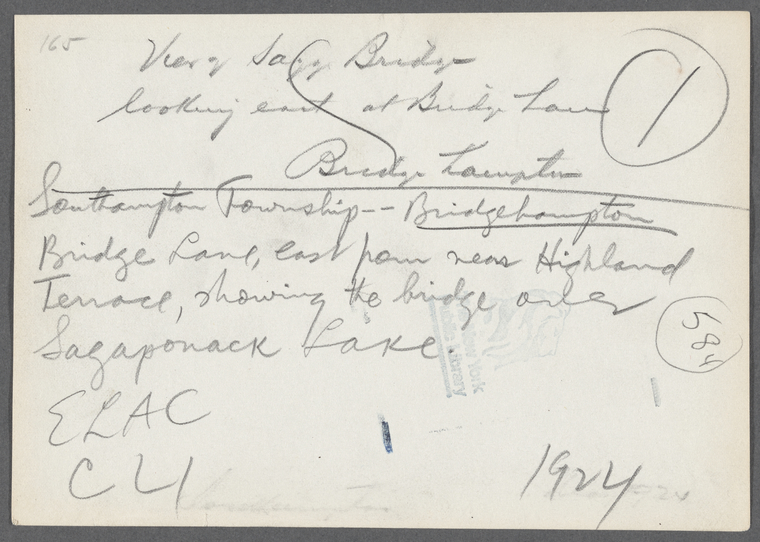 165
View of Sagg Bridge
looking east at Bridge Lane
1
Bridge Hampton
Southampton Township -- Bridgehampton
Bridge Lane, east from near Highland
Terrace, showing the bridge over
Sagaponack Lake.
584
New York
Public Library
ELAC
C 4
1924
Southampton